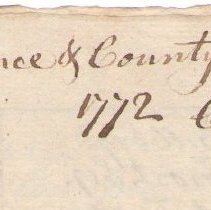 nce & County
1772